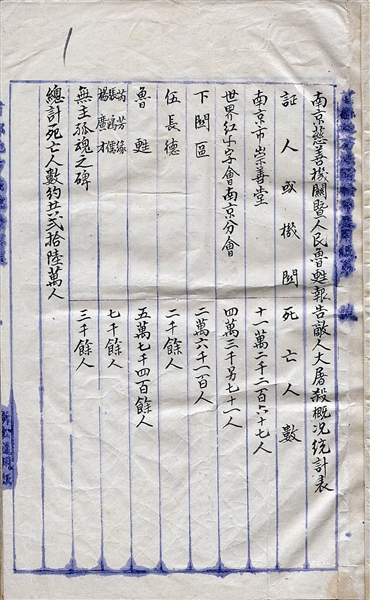 南京慈善機關暨人民魯甦報告敵人大屠殺概况統計表
証人或機関 死亡人數
南京市崇善堂 十一萬二千二百六十七人
世界红卍字會南京分會 四萬三千另七十一人
下関區 二萬六千一百人
伍長德 二千餘人
魯甦 五萬七千四百餘人
芮芳緣
張鴻儒
楊廣才
七千餘人
無主孤魂之碑 三千餘人
總計死亡人數約共弍拾陸萬人
1